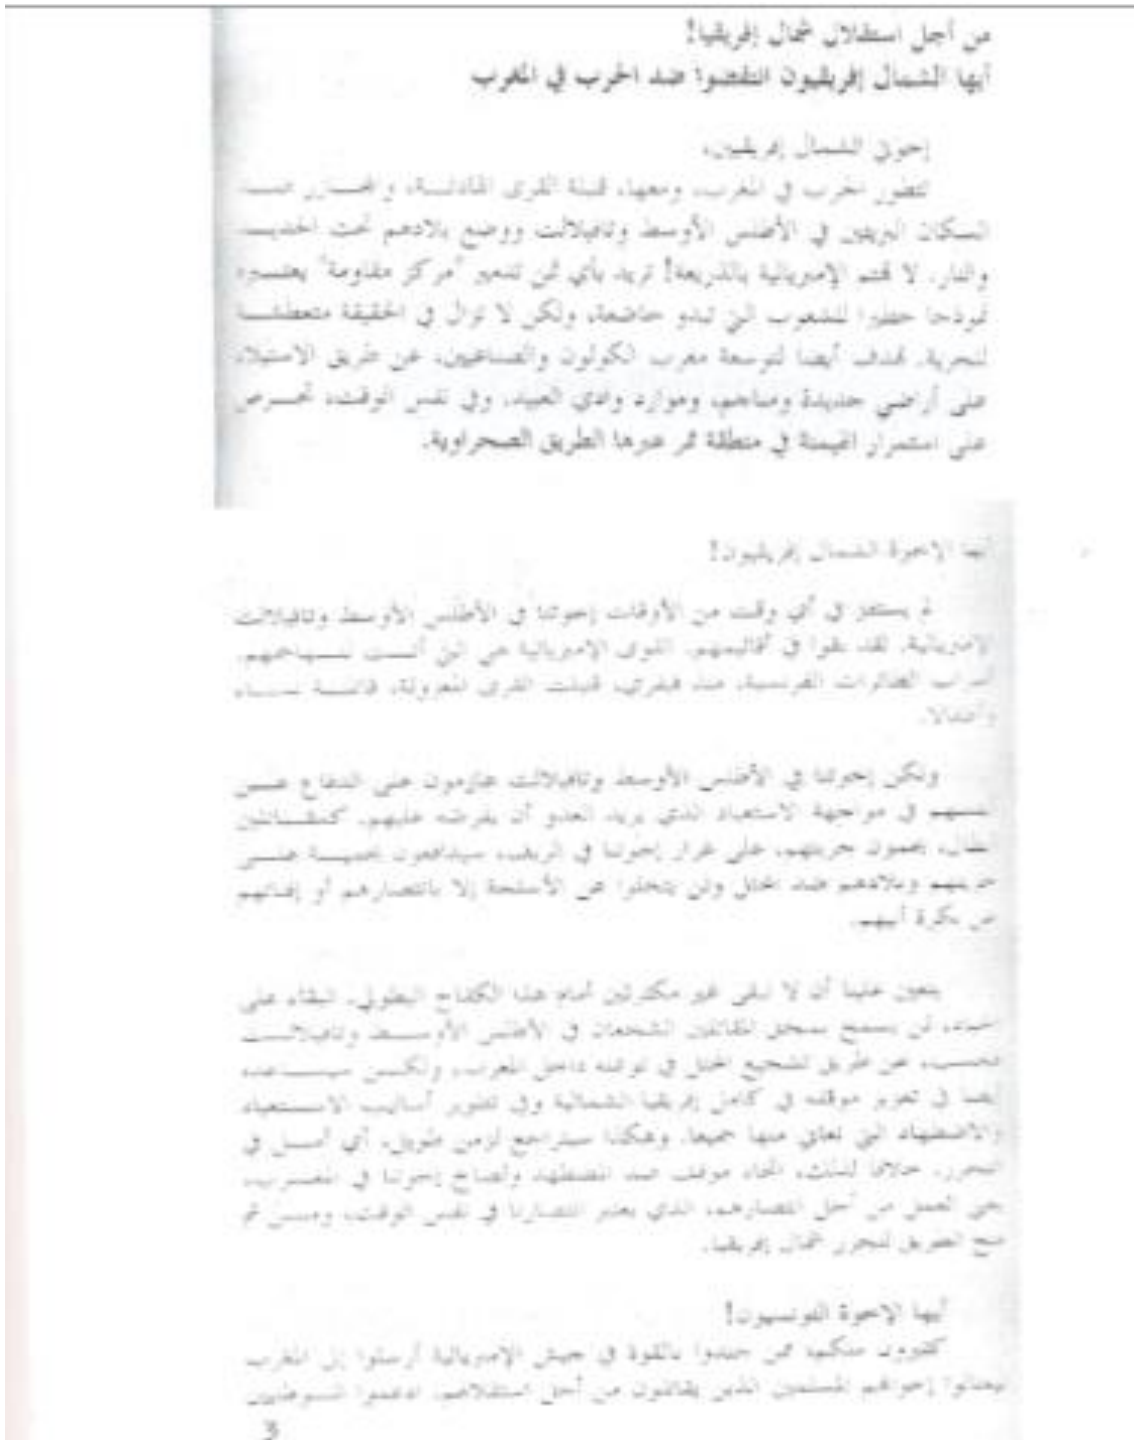 من أجل استقلال شمال إفريقيا!
أيها الشمال إفريقيون انتفضوا ضد الحرب في المغرب
إخوتي الشمال إفريقيين،
تتطور الحرب في المغرب، ومعها، قنبلة القرى الهادئة، والمجازر ضد
السكان البريئين في الأطلس الأوسط وتافيلالت ووضع بلادهم تحت الحديد
والنار. لا تهتم الإمبريالية بالذريعة! تريد بأي ثمن تدمير "مركز مقاومة" يعتبره
نموذجا خطيرا للشعوب التي تبدو خاضعة، ولكن لا تزال في الحقيقة متعطشة
للحرية. تهدف أيضا لتوسعة مغرب الكولون والصناعيين، عن طريق الاستيلاء
على أراضي جديدة ومناجم، وموارد وادي العبيد. وفي نفس الوقت، تحرص
على استمرار الهيمنة في منطقة تمر عبرها الطريق الصحراوية.
أيها الإخوة الشمال إفريقيون!
لم في أي وقت من الأوقات إخوتنا في الأطلس الأوسط وتافيلالت
الإمبريالية. لقد بقوا في أقاليمهم. القوى الإمبريالية هي التي أتت تهاجمهم.
أسراب الطائرات الفرنسية، منذ فيفري، قنبلت القرى المعزولة، قاتلة نساء
وأطفالا.
ولكن إخوتنا في الأطلس الأوسط وتافيلالت عازمون على الدفاع عن
أنفسهم في مواجهة الاستعباد الذي يريد العدو أن يفرضه عليهم. كمقاتلين
أبطال، يحمون حريتهم، على غرار إخوتنا في الريف، سيدافعون بحمية على
حريتهم وبلادهم ضد المحتل ولن يتخلوا عن الأسلحة إلا بانتصارهم أو إفنائهم
عن بكرة أبيهم.
يتعين علينا أن لا نبقى غير مكترثين أمام هذا الكفاح البطولي. البقاء على
الحياد، لن يسمح بسحق المقاتلين الشجعان في الأطلس الأوسط وتافيلالت
فحسب، عن طريق تشجيع المحتل في توغله داخل المغرب، ولكن سيساعده
أيضا في تعزيز موقفه في كامل إفريقيا الشمالية وفي تطوير أساليب الاستعباد
والاضطهاد التي نعاني منها جميعا. وهكذا سيتراجع لزمن طويل، أي أمل في
التحرر. خلافا لذلك، اتخاذ موقف ضد المضطهد ولصالح إخوتنا في المغرب،
يعني العمل من أجل انتصارهم، الذي يعتبر انتصارنا في نفس الوقت، ومن ثم
فتح الطريق لتحرر شمال إفريقيا.
أيها الإخوة التونسيون!
كثيرون منكم، ممن جندوا بالقوة في جيش الإمبريالية أرسلوا إلى المغرب
ليقاتلوا إخوانهم المسلمين الذين يقاتلون من أجل استقلالهم.
3